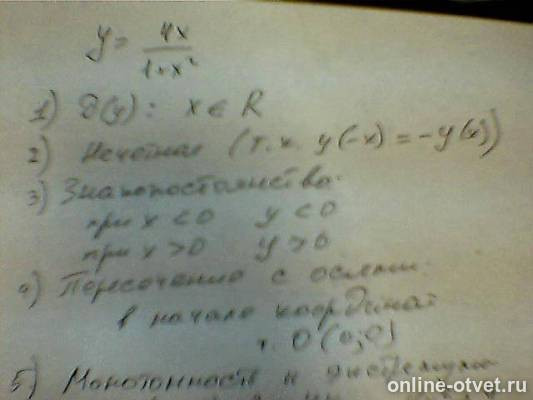 y = 4x / 1+x²
1) D(y): x ∈ R
2) Нечетная (т.к. y(-x) = -y(x))
3) Знакопостоянства:
при x < 0 y < 0
при x > 0 y > 0
4) Пересечение с осями:
в начале координат
т. O (0;0)
5) Монотонность и экстремумы
online-otvet.ru